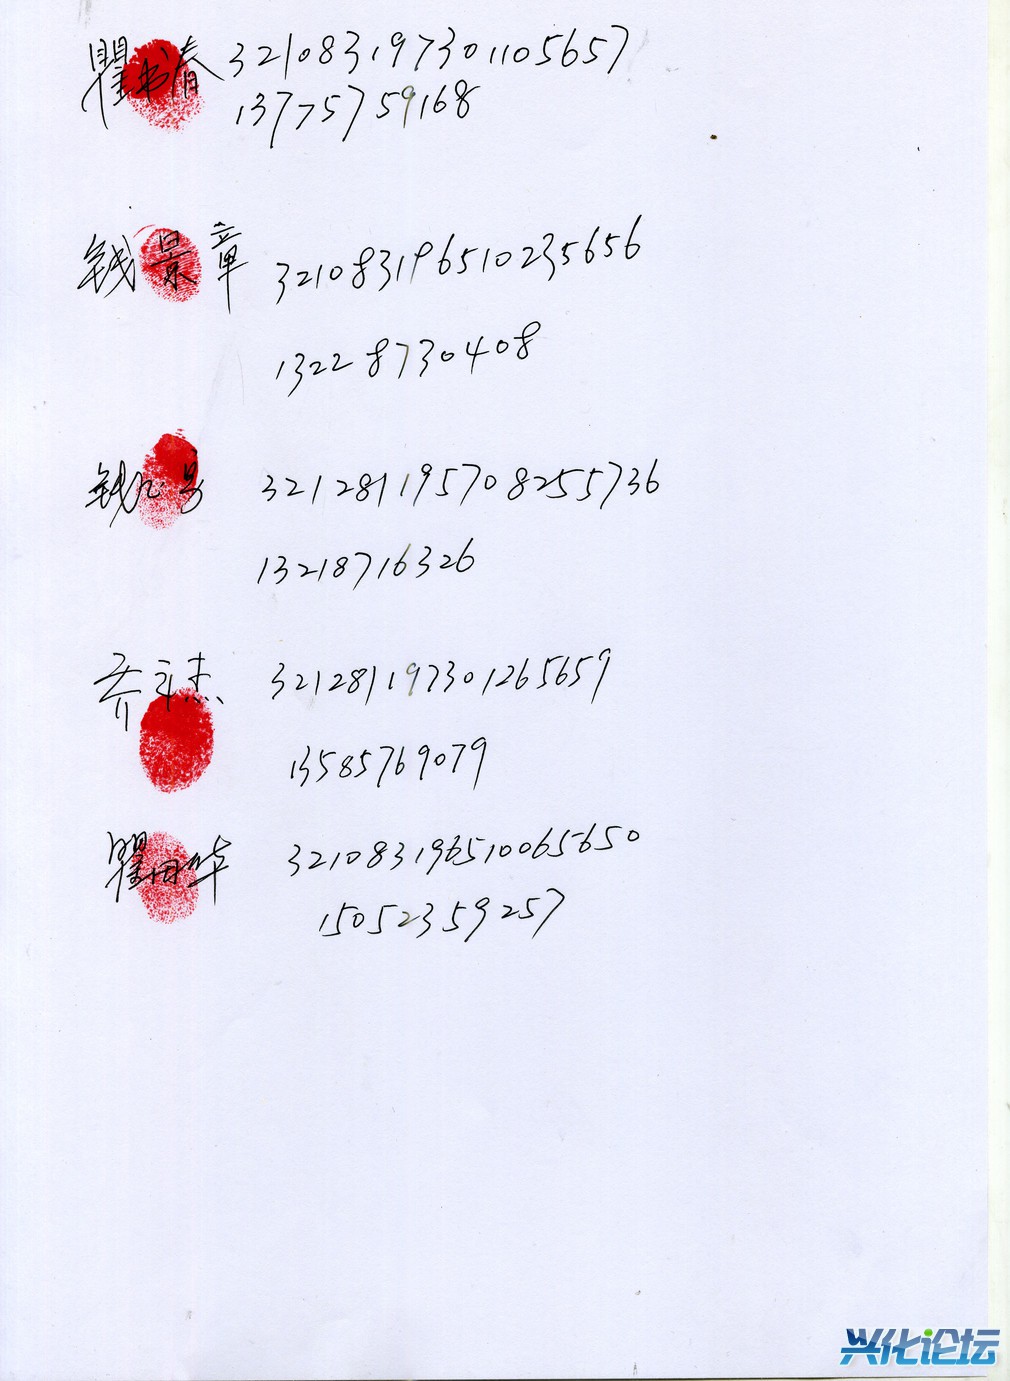 瞿书清 321083197301105657
13775759168
钱景章 321083196510235656
13228730408
钱 321281195708255736
13218716326
乔 杰 321281197301265659
13585769079
瞿 华 321083196510065650
15052359257
兴化论坛